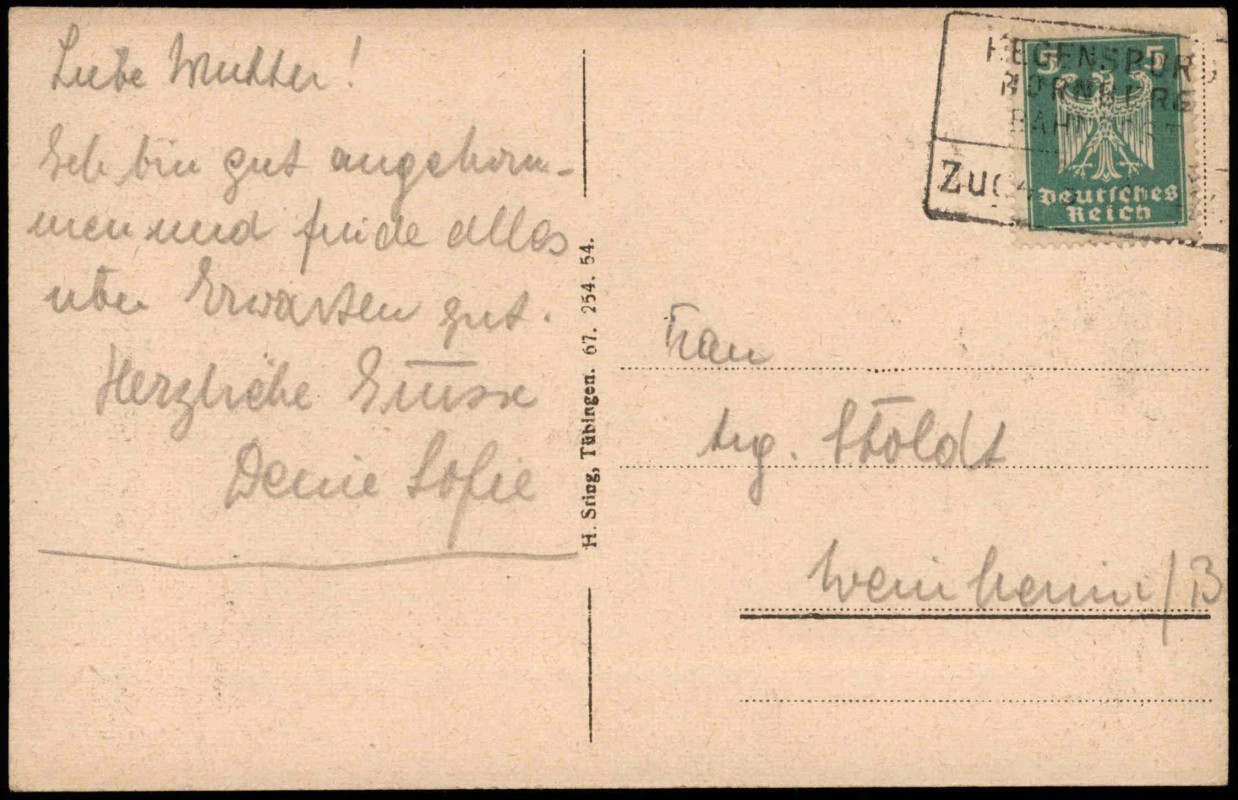 Liebe Mutter!
Ich bin gut angekom-
men und finde alles
über Erwarten gut.
Herzliche Grüsse
Deine Sofie
H. Sting, Tübingen. 67. 254. 54.
REGENSBURG
NÜRNBERG
BAHNPOST
Zug
5 5
Deutsches
Reich
Frau
Stoldt
Weinheim/B